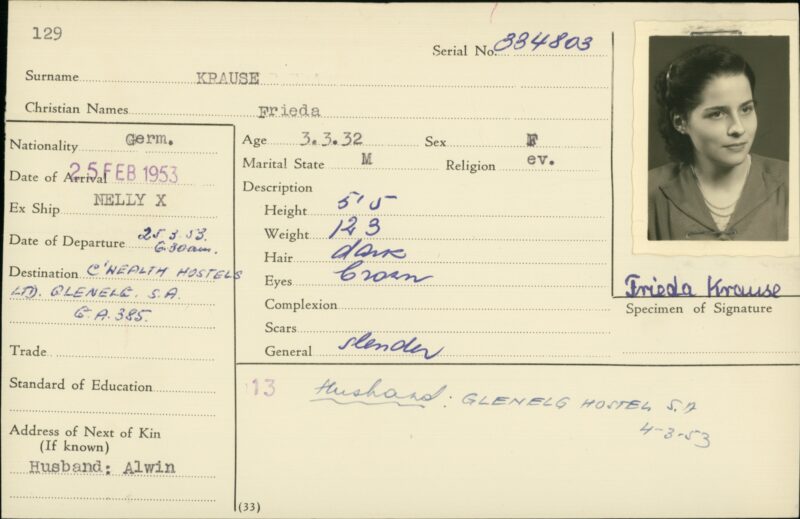 129
Serial No. 334803
Surname KRAUSE
Christian Names Frieda
Nationality Germ.
Date of Arrival 25 FEB 1953
Ex Ship NELLY X
Date of Departure 25.3.53.
6.30am.
Destination C'WEALTH HOSTELS
LTD. GLENELG. S.A.
G.A. 385.
Trade
Standard of Education
Address of Next of Kin
(If known)
Husband: Alwin
Age 3.3.32 Sex F
Marital State M Religion ev.
Description
Height 5'5
Weight 123
Hair dark
Eyes brown
Complexion
Scars
General slender
Frieda Krause
Specimen of Signature
13 Husband: GLENELG HOSTEL S.A
4-3-53
(33)